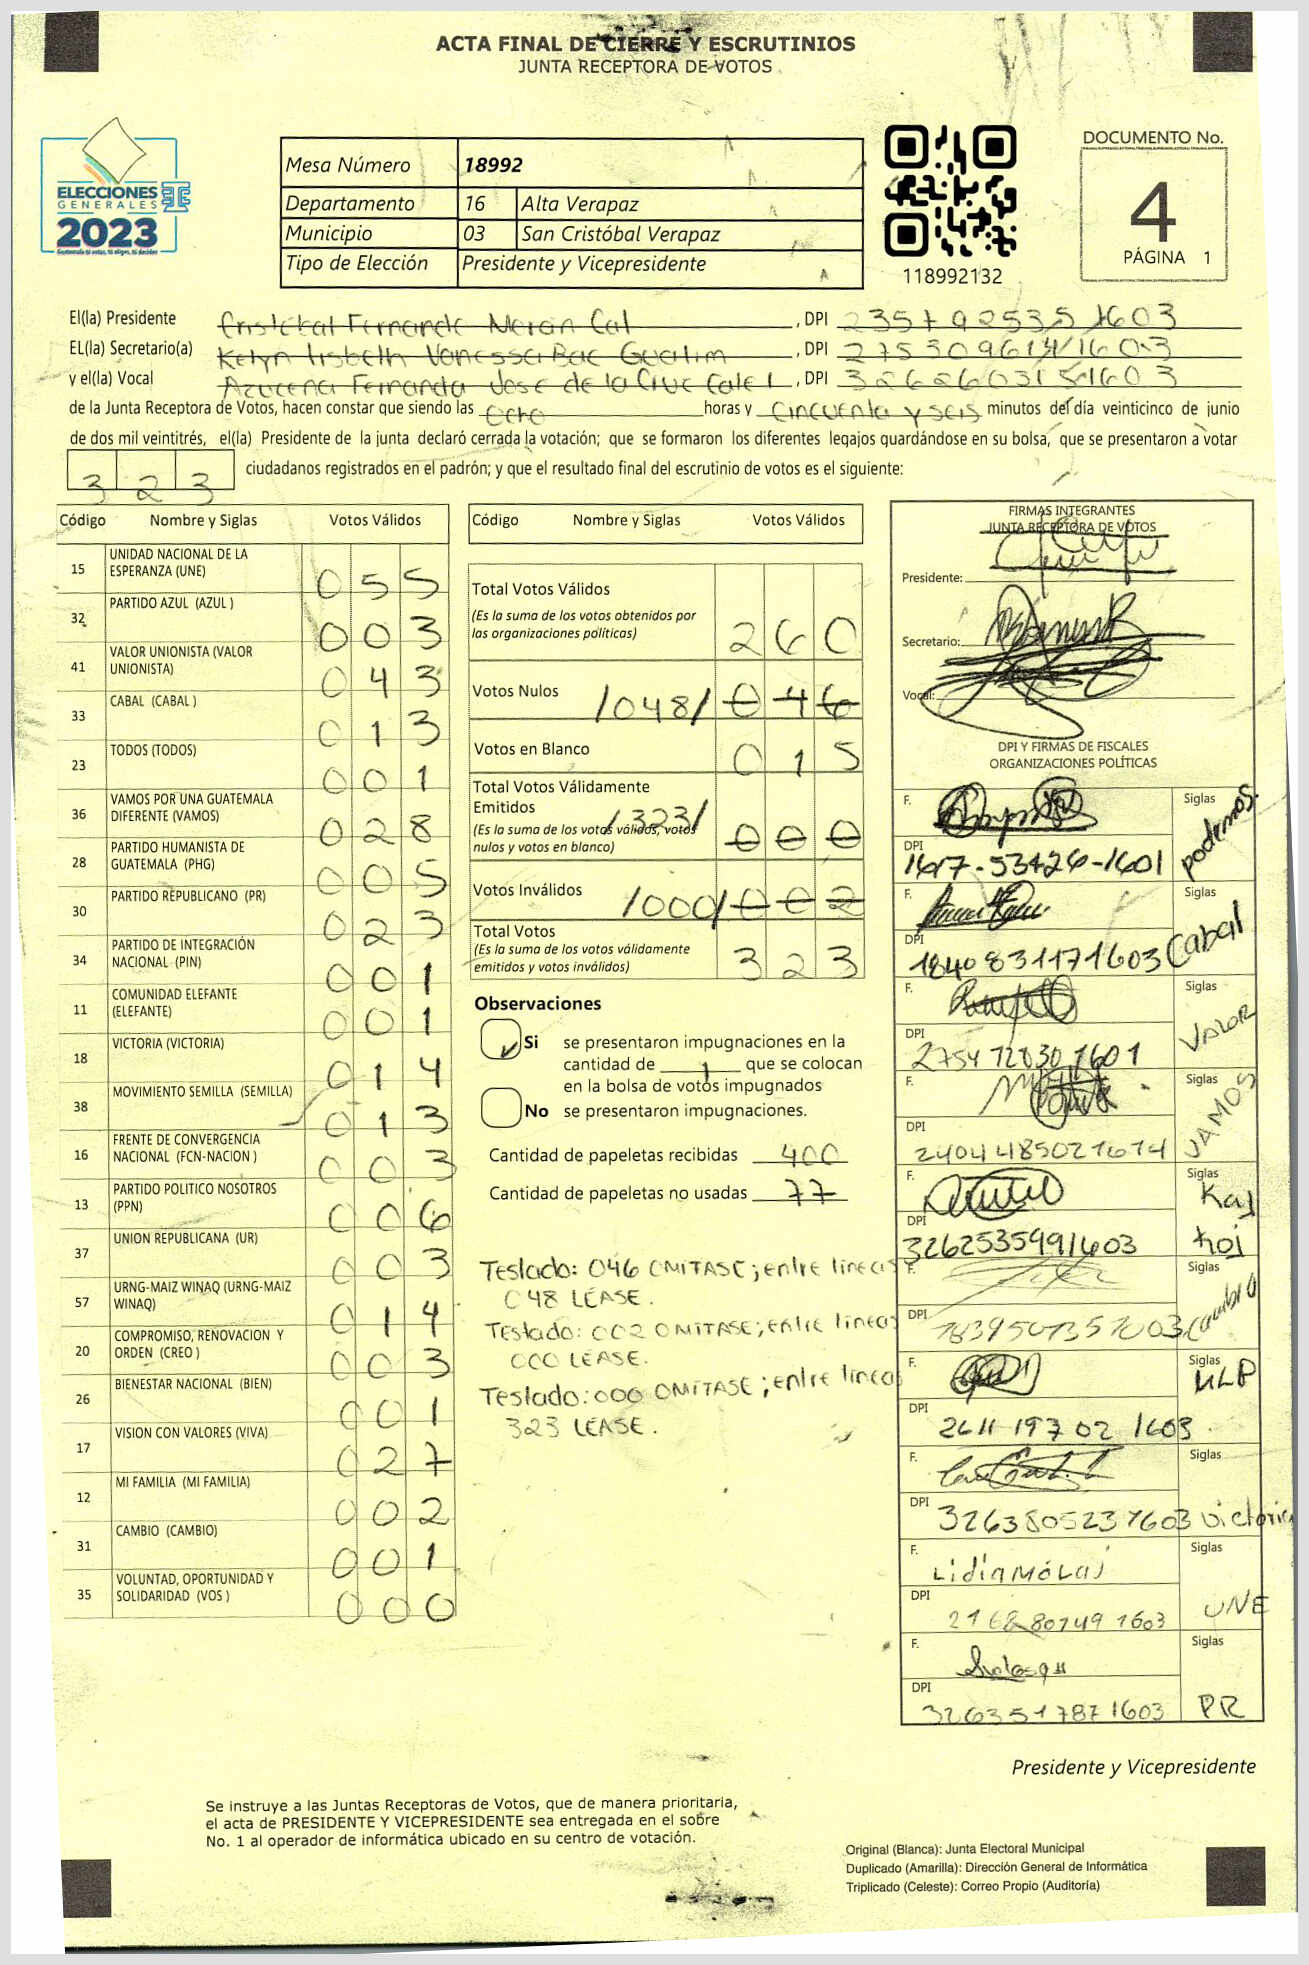 ACTA FINAL DE CIERRE Y ESCRUTINIOS
JUNTA RECEPTORA DE VOTOS
ELECCIONES
GENERALES
2023
Mesa Número 18992
Departamento 16 Alta Verapaz
Municipio 03 San Cristóbal Verapaz
Tipo de Elección Presidente y Vicepresidente
118992132
DOCUMENTO No.
4
PÁGINA 1
El(la) Presidente Cristobal Fernando Moran Cal, DPI
EL(la) Secretario(a) Kelyn Lisbeth Vanessa Bac Gualim, DPI
y el(la) Vocal Azucena Fernanda Jose de la Cruz Cale l, DPI
de la Junta Receptora de Votos, hacen constar que siendo las ocho horas y cincuenta y seis minutos del día veinticinco de junio
de dos mil veintitrés, el(la) Presidente de la junta declaró cerrada la votación; que se formaron los diferentes legajos guardándose en su bolsa, que se presentaron a votar
323 ciudadanos registrados en el padrón; y que el resultado final del escrutinio de votos es el siguiente:
Código Nombre y Siglas Votos Válidos
15 UNIDAD NACIONAL DE LA ESPERANZA (UNE) 055
32 PARTIDO AZUL (AZUL ) 003
41 VALOR UNIONISTA (VALOR UNIONISTA) 043
33 CABAL (CABAL ) 013
23 TODOS (TODOS) 001
36 VAMOS POR UNA GUATEMALA DIFERENTE (VAMOS) 028
28 PARTIDO HUMANISTA DE GUATEMALA (PHG) 005
30 PARTIDO REPUBLICANO (PR) 023
34 PARTIDO DE INTEGRACIÓN NACIONAL (PIN) 001
11 COMUNIDAD ELEFANTE (ELEFANTE) 001
18 VICTORIA (VICTORIA) 014
38 MOVIMIENTO SEMILLA (SEMILLA) 013
16 FRENTE DE CONVERGENCIA NACIONAL (FCN-NACION ) 003
13 PARTIDO POLITICO NOSOTROS (PPN) 006
37 UNION REPUBLICANA (UR) 003
57 URNG-MAIZ WINAQ (URNG-MAIZ WINAQ) 014
20 COMPROMISO, RENOVACION Y ORDEN (CREO ) 003
26 BIENESTAR NACIONAL (BIEN) 001
17 VISION CON VALORES (VIVA) 027
12 MI FAMILIA (MI FAMILIA) 002
31 CAMBIO (CAMBIO) 001
35 VOLUNTAD, OPORTUNIDAD Y SOLIDARIDAD (VOS ) 000
Código Nombre y Siglas Votos Válidos
Total Votos Válidos
(Es la suma de los votos obtenidos por
las organizaciones políticas) 260
Votos Nulos /048/ 046
Votos en Blanco 015
Total Votos Válidamente
Emitidos /323/
(Es la suma de los votos válidos, votos
nulos y votos en blanco) 000
Votos Inválidos /000/ 002
Total Votos
(Es la suma de los votos válidamente
emitidos y votos inválidos) 323
Observaciones
Si se presentaron impugnaciones en la
cantidad de 1 que se colocan
en la bolsa de votos impugnados
No se presentaron impugnaciones.
Cantidad de papeletas recibidas 400
Cantidad de papeletas no usadas 77
Testado: 046 OMITASE; entre lineas
048 LEASE.
Testado: 002 OMITASE; entre lineas
000 LEASE.
Testado: 000 OMITASE; entre lineas
323 LEASE.
FIRMAS INTEGRANTES
JUNTA RECEPTORA DE VOTOS
Presidente:
Secretario:
Vocal:
DPI Y FIRMAS DE FISCALES
ORGANIZACIONES POLÍTICAS
F. Siglas podemos.
DPI
F. Siglas Cabal
DPI 1840831171603
F. Siglas VALOR
DPI
F. Siglas VAMOS
DPI 2404485021614
F. Siglas
DPI 3262535991603
F. Siglas
DPI
F. Siglas MLP
DPI 2611 19702 1603
F. Siglas victoria
DPI 3263805231603
F. Siglas UNE
DPI 2168807491603
F. Siglas PR
DPI 3263517871603
Presidente y Vicepresidente
Se instruye a las Juntas Receptoras de Votos, que de manera prioritaria,
el acta de PRESIDENTE Y VICEPRESIDENTE sea entregada en el sobre
No. 1 al operador de informática ubicado en su centro de votación.
Original (Blanca): Junta Electoral Municipal
Duplicado (Amarilla): Dirección General de Informática
Triplicado (Celeste): Correo Propio (Auditoría)